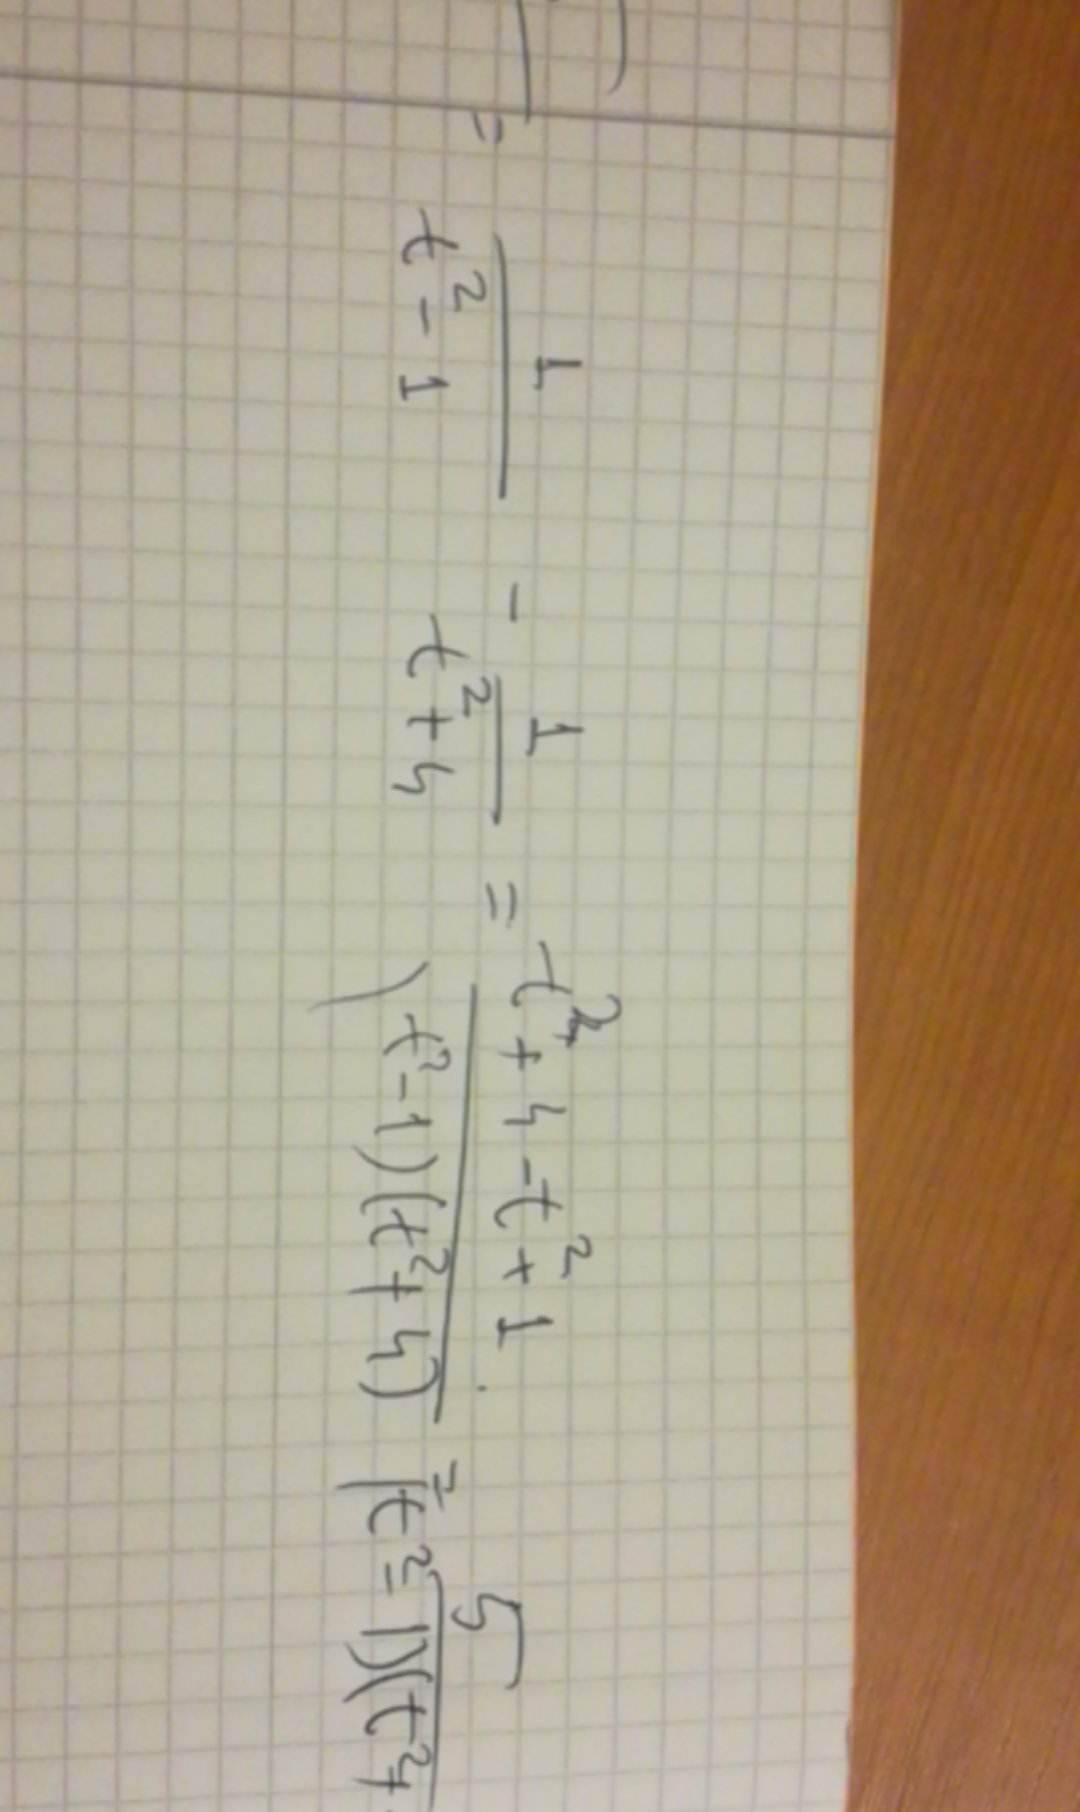 = 1/(t² - 1) - 1/(t² + 4) = (t² + 4 - t² + 1)/((t² - 1)(t² + 4)) = 5/((t² - 1)(t² +